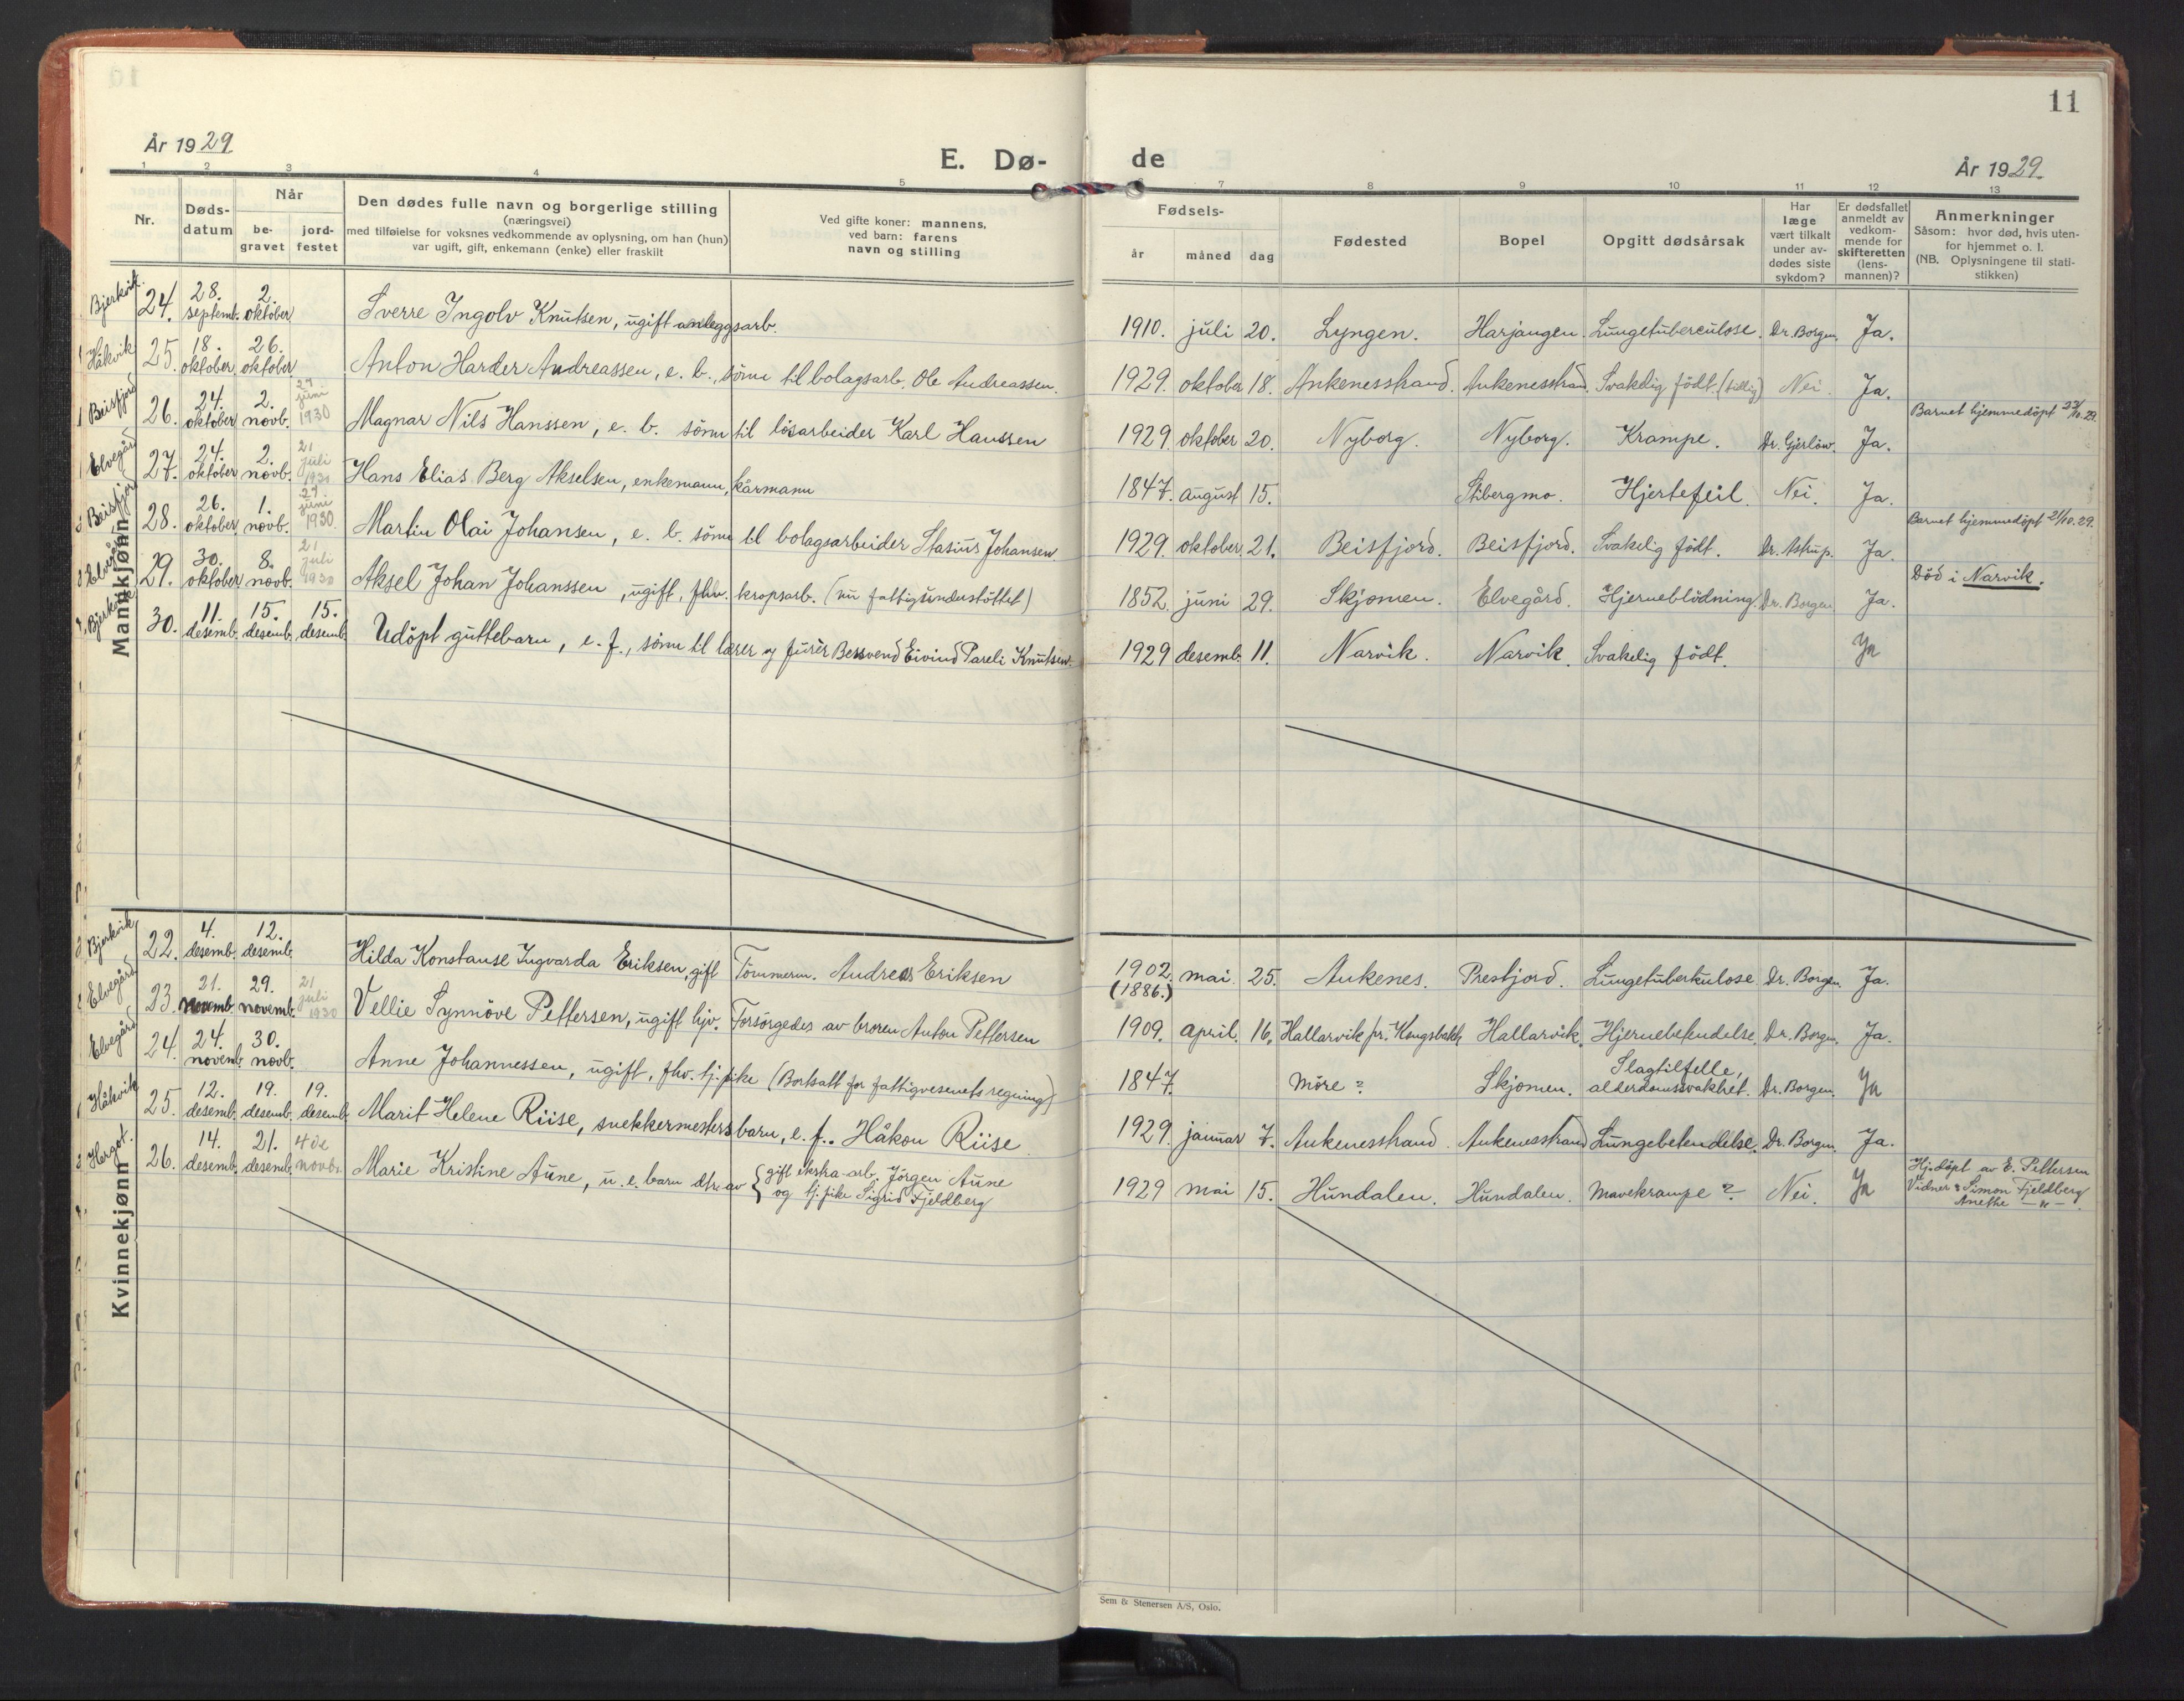 11
År 1929
E. Dø-
de
År 1929.
1 2 3 4 5
6 7 8 9 10 11 12 13
Nr.
Døds-
datum
Når
be-
gravet
jord-
festet
Den dødes fulle navn og borgerlige stilling
(næringsvei)
med tilføielse for voksnes vedkommende av oplysning, om han (hun)
var ugift, gift, enkemann (enke) eller fraskilt
Ved gifte koner: mannens,
ved barn: farens
navn og stilling
Fødsels-
år måned dag
Fødested
Bopel
Opgitt dødsårsak
Har
læge
vært tilkalt
under av-
dødes siste
sykdom?
Er dødsfallet
anmeldt av
vedkom-
mende for
skifteretten
(lens-
mannen)?
Anmerkninger
Såsom: hvor død, hvis uten-
for hjemmet o. l.
(NB. Oplysningene til stati-
stikken)
Mannkjønn
Bjerkvik. 24. 28. septemb. 2. oktober Sverre Ingolv Knutsen, ugift anleggsarb. 1910. juli 20. Lyngen. Harjangen. Lungetuberculose. Dr. Borgen. Ja.
Håkvik 25. 18. oktober. 26. oktober. Anton Harder Andreassen, e. b., sönn til bolagsarb. Ole Andreassen. 1929. oktober 18. Ankenesstrand. Ankenesstrand. Svakelig födt. (tillig) Nei. Ja.
Beisfjord 26. 24. oktober 2. novb. 29 juni 1930 Magnar Nils Hanssen, e. b. sönn til lösarbeider Karl Hanssen 1929. oktober 20. Nyborg. Nyborg. Krampe. Dr. Gjerlöw. Ja. Barnet hjemmedöpt 23/10.29.
Elvegård 27. 24. oktober 2. novb. 21 juli 1930 Hans Elias Berg Akselsen, enkemann, kårmann 1847. august 15. Stibergmo. Hjertefeil. Nei. Ja.
Beisfjord 28. 26. oktober. 1. novb. 29. juni 1930. Martin Olai Johansen, e. b. sönn til bolagsarbeider Stasius Johansen. 1929. oktober. 21. Beisfjord. Beisfjord. Svakelig födt. Dr. Astrup. Ja. Barnet hjemmedöpt 21/10.29.
Elvegård 29. 30. oktober 8. novb. 21 juli 1930 Aksel Johan Johanssen, ugift, fhv. kropsarb. (nu fattigunderstöttet) 1852. juni 29. Skjomen. Elvegård. Hjerneblödning. Dr. Borgen Ja. Död i Narvik.
Bjerkvik 30. 11. desemb. 15. desemb. 15. desemb. Udöpt guttebarn, e. f., sönn til lærer og furér Bersvend Eivind Pareli Knutsen. 1929 desemb. 11. Narvik. Narvik. Svakelig födt. Ja
Kvinnekjønn
Bjerkvik 22. 4. desemb. 12. desemb. Hilda Konstanse Ingvarda Eriksen, gift Tömmerm. Andreas Eriksen 1902. (1886.) mai 25. Ankenes. Prestjord. Lungetuberkulose. Dr. Borgen. Ja.
Elvegård 23. 21. novemb. 29. novemb. 21 juli 1930 Vellie Synnöve Pettersen, ugift hjv. Forsörgedes av broren Anton Pettersen 1909. april. 16. Hallarvik pr. Kongsbakk Hallarvik. Hjernebetendelse. Dr. Borgen. Ja.
Elvegård 24. 24. novemb. 30. novb. Anne Johannessen, ugift, fhv. tj.pike (Bortsatt for fattigvesenets regning) 1847. Möre? Skjomen. Slagtilfelle, alderdomssvakhet. Dr. Borgen. Ja
Håkvik 25. 12. desemb. 19. desemb. 19. desemb. Marit Helene Riise, snekkermesters barn, e. f. Håkon Riise. 1929. januar 7. Ankenesstrand. Ankenesstrand Lungebetendelse. Dr. Borgen. Ja.
Hergot. 26. 14. desemb. 21. desemb. 4de novb. Marie Kristine Aune, u. e. barn dtr. av { gift ekstra-arb. Jörgen Aune og tj. pike Sigrid Fjeldberg 1929 mai 15. Hundalen. Hundalen. Mavekrampe? Nei. Ja Hj.döpt av E. Pettersen
Vidner: Simon Fjeldberg
Anethe —"—.
Sem & Stenersen A/S, Oslo.